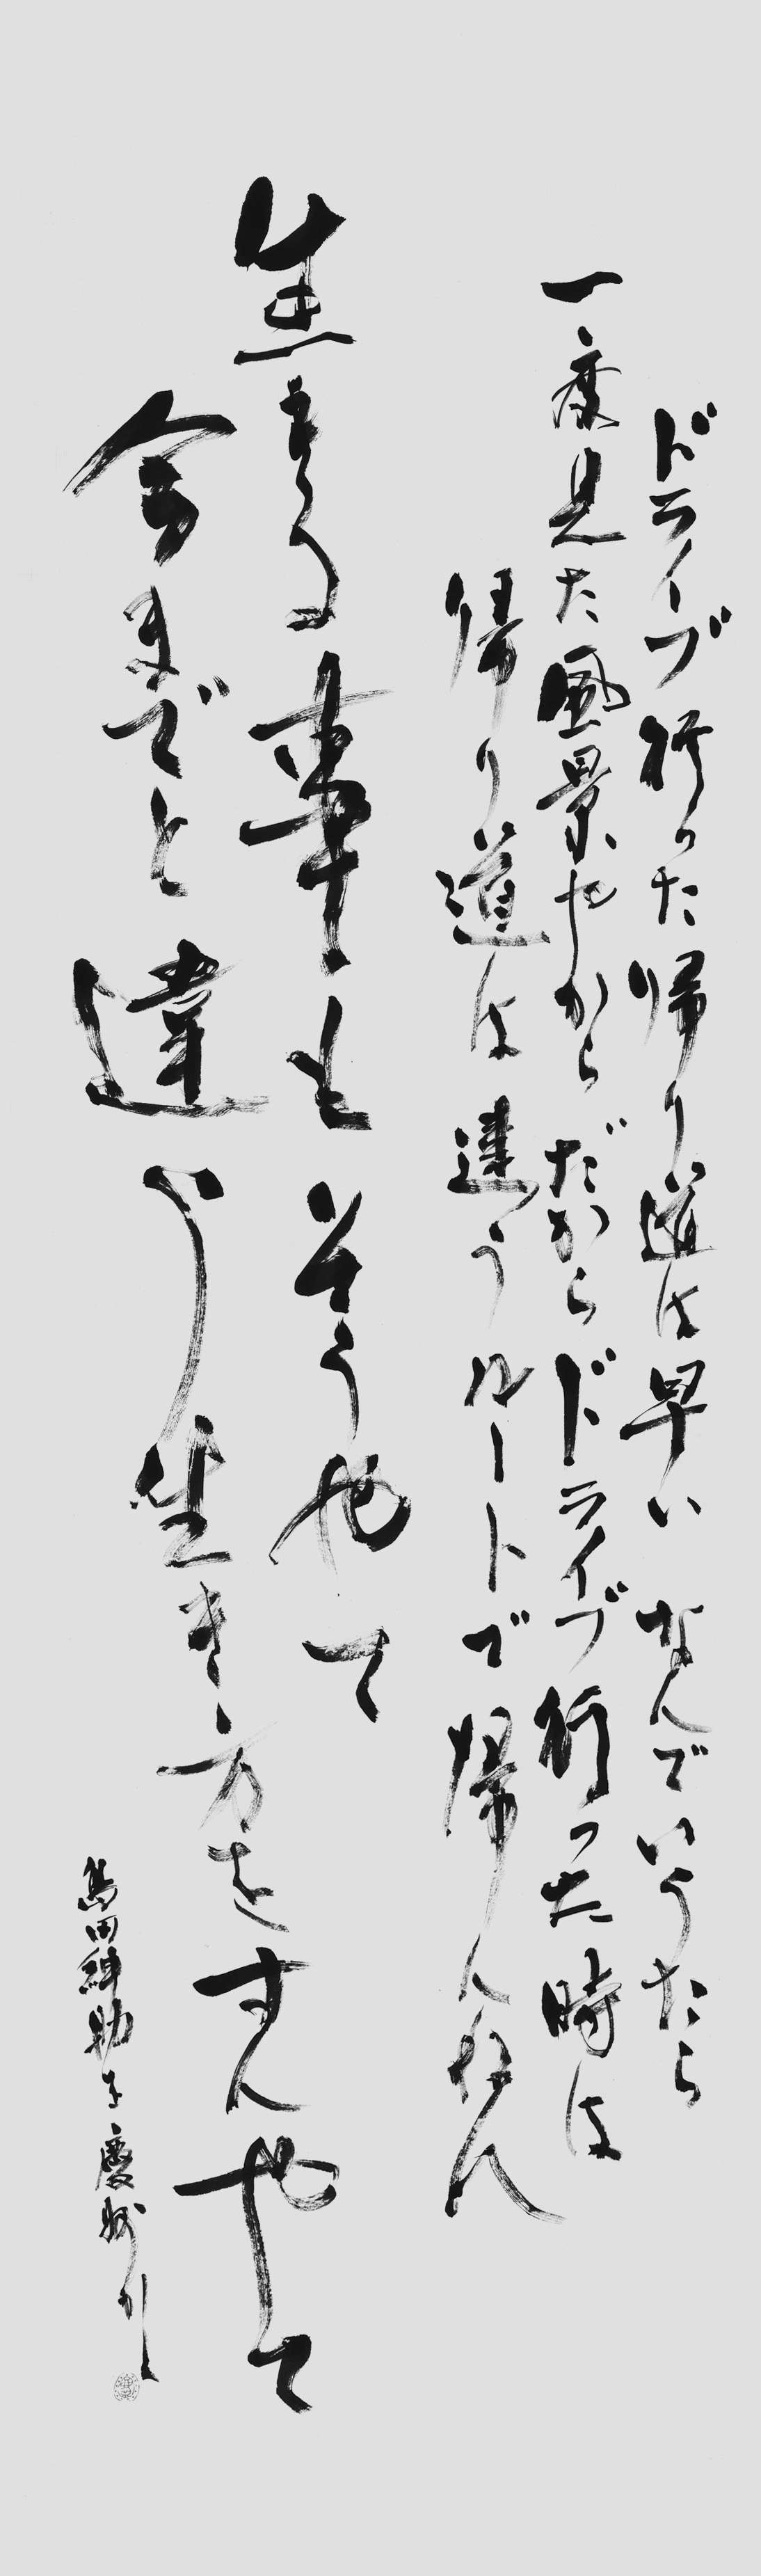 ドライブ行った帰り道は早い なんでいうたら
一度見た風景やから だからドライブ行った時は
帰り道は違うルートで帰んねん
生きる事もそうやて
今までと違う生き方をすんやて
島田紳助